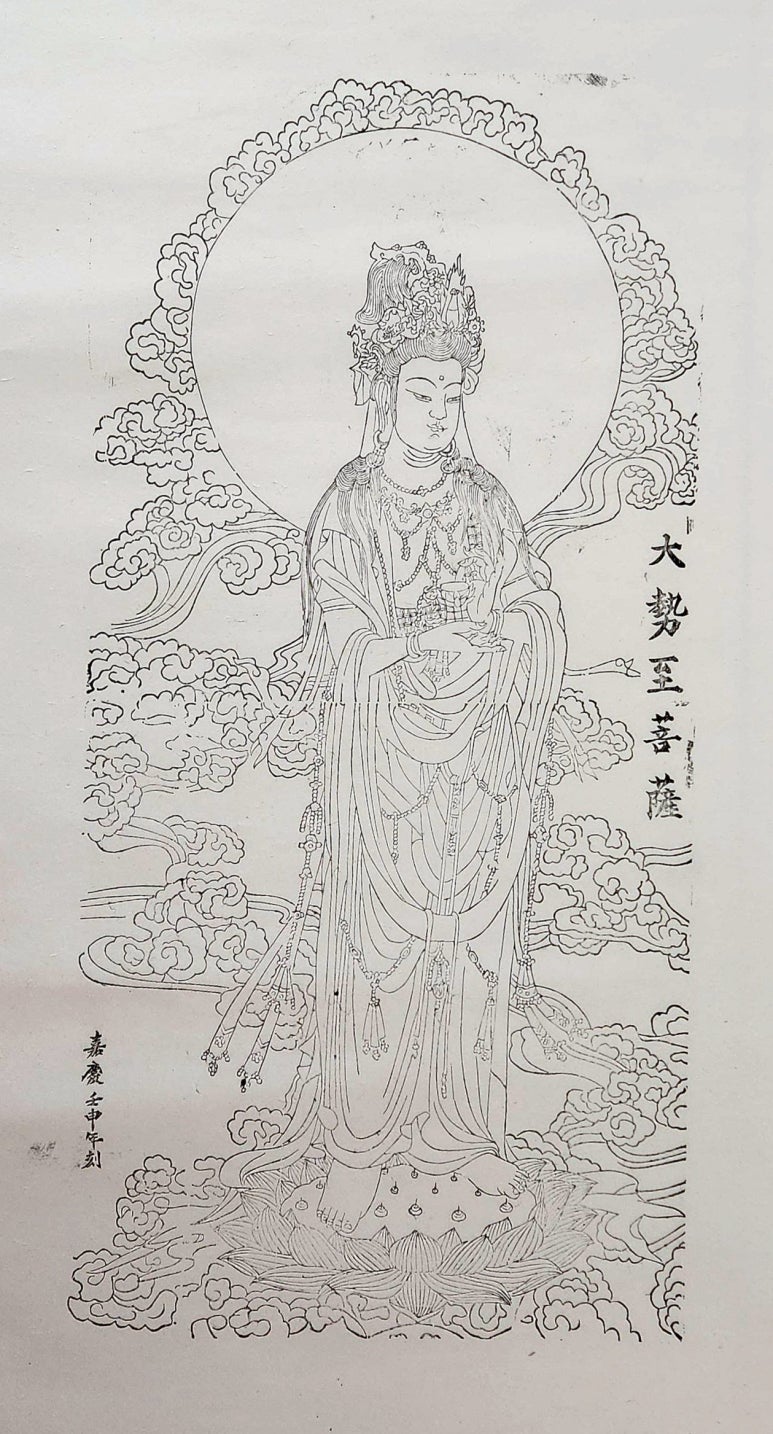 大勢至菩薩
嘉慶壬申年刻